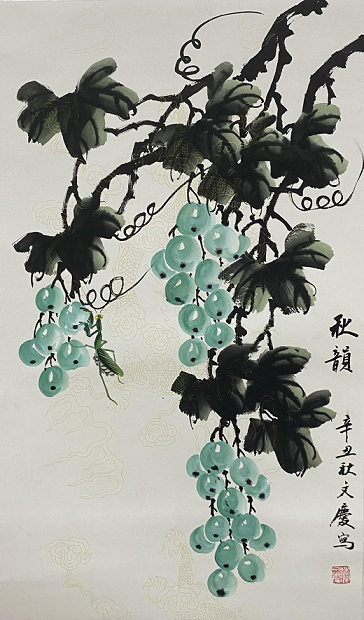 秋韻
辛丑秋文慶寫